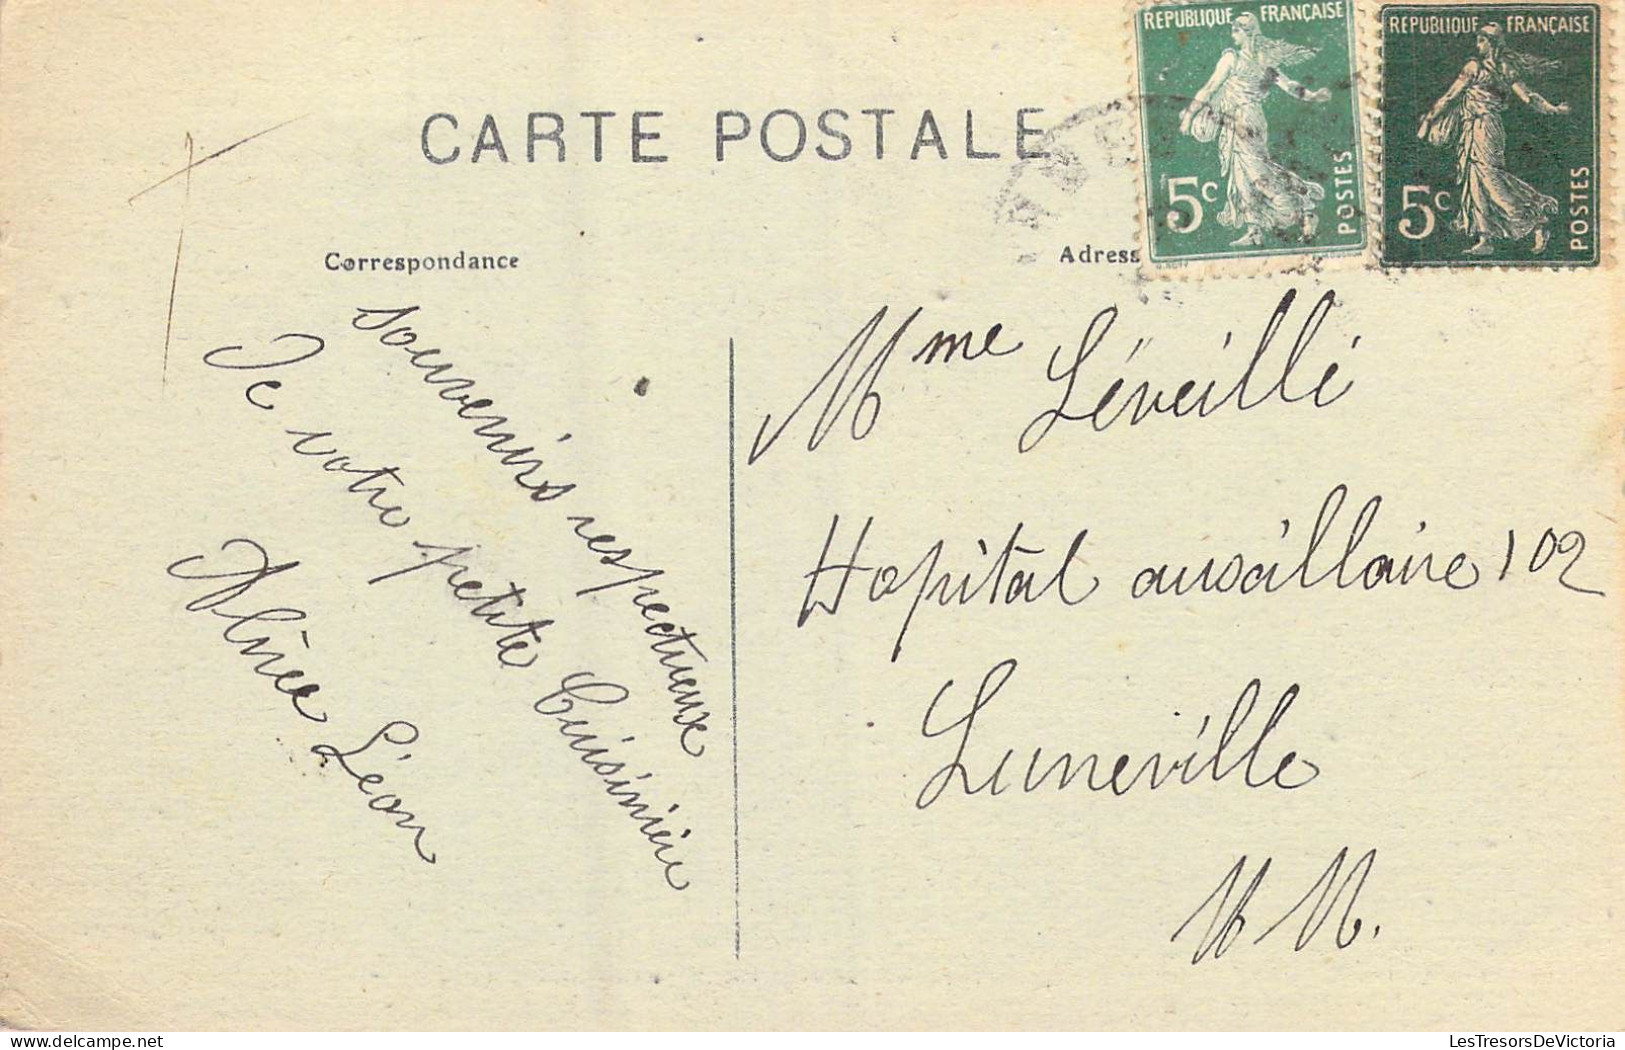 RÉPUBLIQUE FRANÇAISE
5c POSTES
RÉPUBLIQUE FRANÇAISE
5c POSTES
CARTE POSTALE
Correspondance
Adress
souvenirs respectueux
De votre petite Cuisinière
Aline Léon
Mme Léveillé
Hopital auxillaire 102
Luneville
M M.
LesTresorsDeVictoria